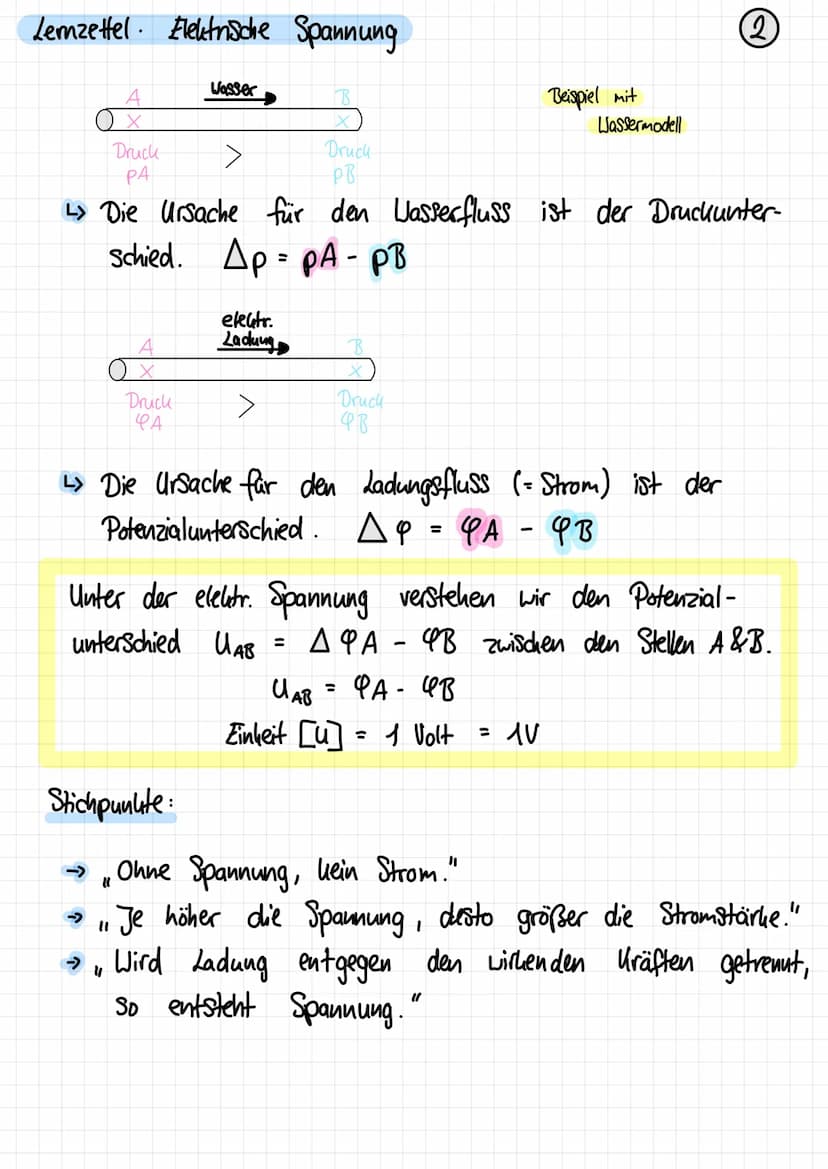 Lernzettel. Elektrische Spannung
2
A Wasser B
Beispiel mit
Wassermodell
x x
Druck > Druck
pA pB
↳ Die Ursache für den Wasserfluss ist der Druckunter-
schied. Δp = pA - pB
elektr.
A Ladung B
x x
Druck > Druck
φA φB
↳ Die Ursache für den Ladungsfluss (= Strom) ist der
Potenzialunterschied. Δφ = φA - φB
Unter der elektr. Spannung verstehen wir den Potenzial-
unterschied UAB = ΔφA - φB zwischen den Stellen A & B.
UAB = φA - φB
Einheit [U] = 1 Volt = 1V
Stichpunkte:
→ „Ohne Spannung, kein Strom."
→ „Je höher die Spannung, desto größer die Stromstärke."
→ „Wird Ladung entgegen den wirkenden Kräften getrennt,
so entsteht Spannung."